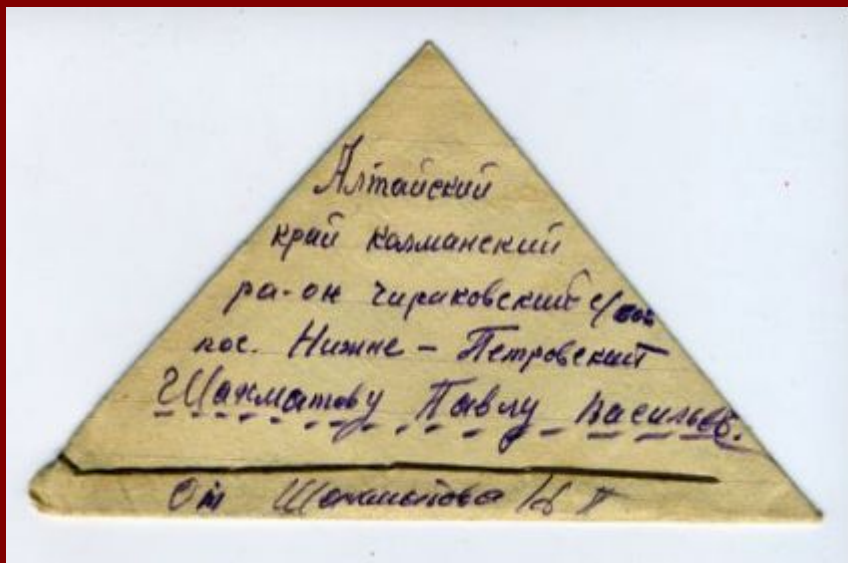 Алтайский
край калманский
ра-он чириковский с/
пос. Нижне - Петровский
Шахматову Павлу Васильев.
От Шахматова